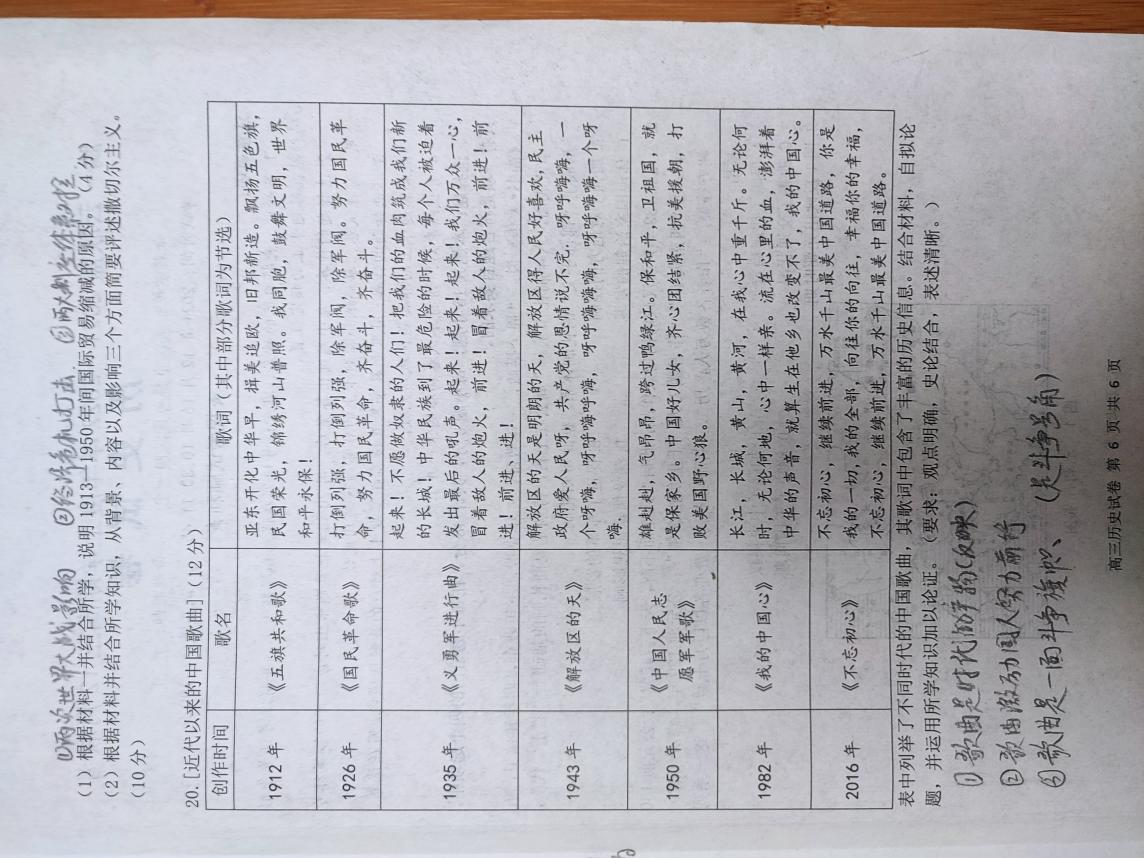 ①两次世界大战影响 ②经济危机打击 ③两大剧全体系对抗
(1) 根据材料一并结合所学，说明 1913—1950 年间国际贸易缩减的原因。(4 分)
(2) 根据材料并结合所学知识，从背景、内容以及影响三个方面简要评述撒切尔主义。
(10 分)
20.[近代以来的中国歌曲]（12 分）
创作时间 歌名 歌词（其中部分歌词为节选）
1912 年 《五旗共和歌》 亚东开化中华早，揖美追欧，旧邦新造。飘扬五色旗，
民国荣光，锦绣河山普照。我同胞，鼓舞文明，世界
和平永保！
1926 年 《国民革命歌》 打倒列强，打倒列强，除军阀，除军阀。努力国民革
命，努力国民革命，齐奋斗，齐奋斗。
1935 年 《义勇军进行曲》 起来！不愿做奴隶的人们！把我们的血肉筑成我们新
的长城！中华民族到了最危险的时候，每个人被迫着
发出最后的吼声。起来！起来！起来！我们万众一心，
冒着敌人的炮火，前进！冒着敌人的炮火，前进！前
进！前进、进！
1943 年 《解放区的天》 解放区的天是明朗的天，解放区得人民好喜欢，民主
政府爱人民呀，共产党的恩情说不完．呀呼嗨嗨，一
个呀嗨，呀呼嗨呼嗨，呀呼嗨嗨嗨，呀呼嗨嗨一个呀
嗨．
1950 年 《中国人民志
愿军军歌》 雄赳赳，气昂昂，跨过鸭绿江。保和平，卫祖国，就
是保家乡。中国好儿女，齐心团结紧，抗美援朝，打
败美国野心狼。
1982 年 《我的中国心》 长江，长城，黄山，黄河，在我心中重千斤。无论何
时，无论何地，心中一样亲。流在心里的血，澎湃着
中华的声音，就算生在他乡也改变不了，我的中国心。
2016 年 《不忘初心》 不忘初心，继续前进，万水千山最美中国道路，你是
我的一切，我的全部，向往你的向往，幸福你的幸福，
不忘初心，继续前进，万水千山最美中国道路。
表中列举了不同时代的中国歌曲，其歌词中包含了丰富的历史信息。结合材料，自拟论
题，并运用所学知识加以论证。（要求：观点明确，史论结合，表述清晰。）
① 歌曲是时代的产物(反映)
② 歌曲激励国人努力前行
③ 歌曲是一面斗争旗帜、（是斗争号角）
高三历史试卷 第 6 页 共 6 页